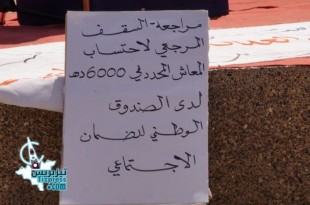 مراجعة السقف
المرجعي لاحتساب
المعاش المحدد في 6000 دهـ
لدى الصندوق
الوطني للضمان
الاجتماعي
تيزبريس
tizpress
.com